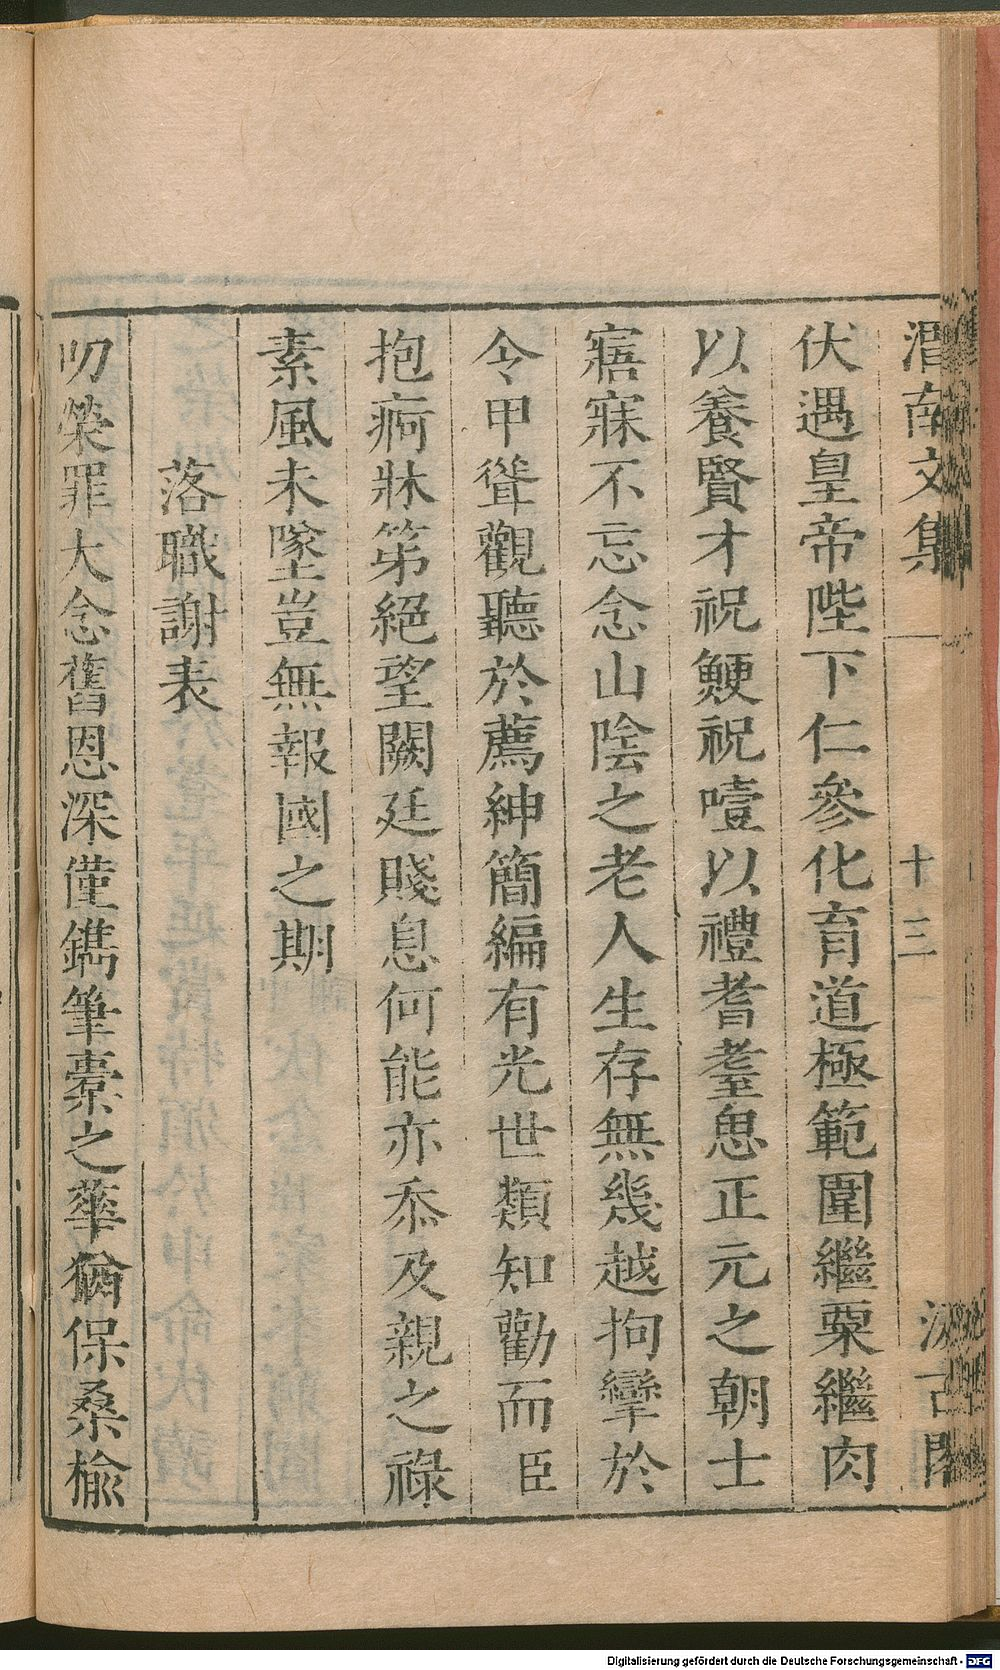 渭南文集 十三 汲古閣
伏遇皇帝陛下仁參化育道極範圍繼粟繼肉
以養賢才祝鯁祝噎以禮耆耋思正元之朝士
寤寐不忘念山陰之老人生存無幾越拘攣於
令甲聳觀聽於薦紳簡編有光世類知勸而臣
抱痾牀第絕望闕廷賤息何能亦忝及親之祿
素風未墜豈無報國之期
落職謝表
叨榮罪大念舊恩深僅鐫筆橐之華猶保桑榆
Digitalisierung gefördert durch die Deutsche Forschungsgemeinschaft - DFG